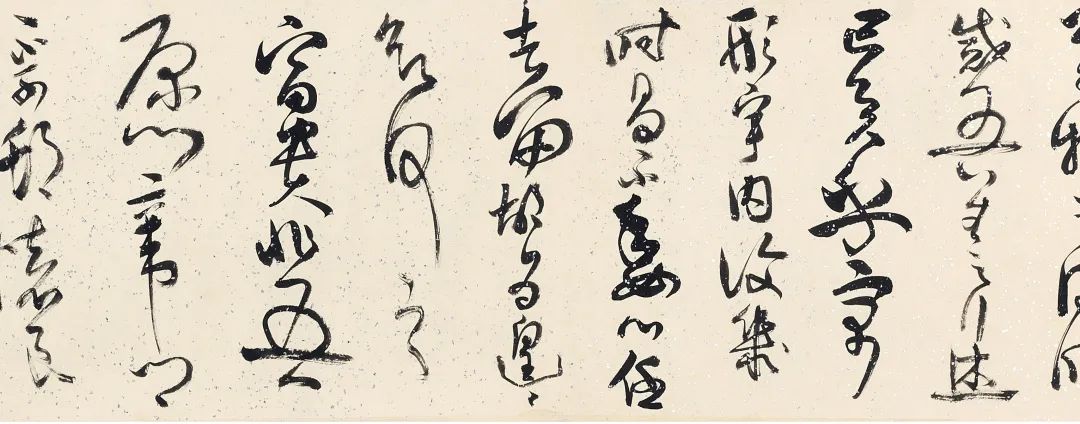 物之得時
感吾生之行休
已矣乎寓
形宇内復幾
時曷不委心任
去留胡為遑々
欲何之
富貴非吾
愿帝鄉
不可期懷良